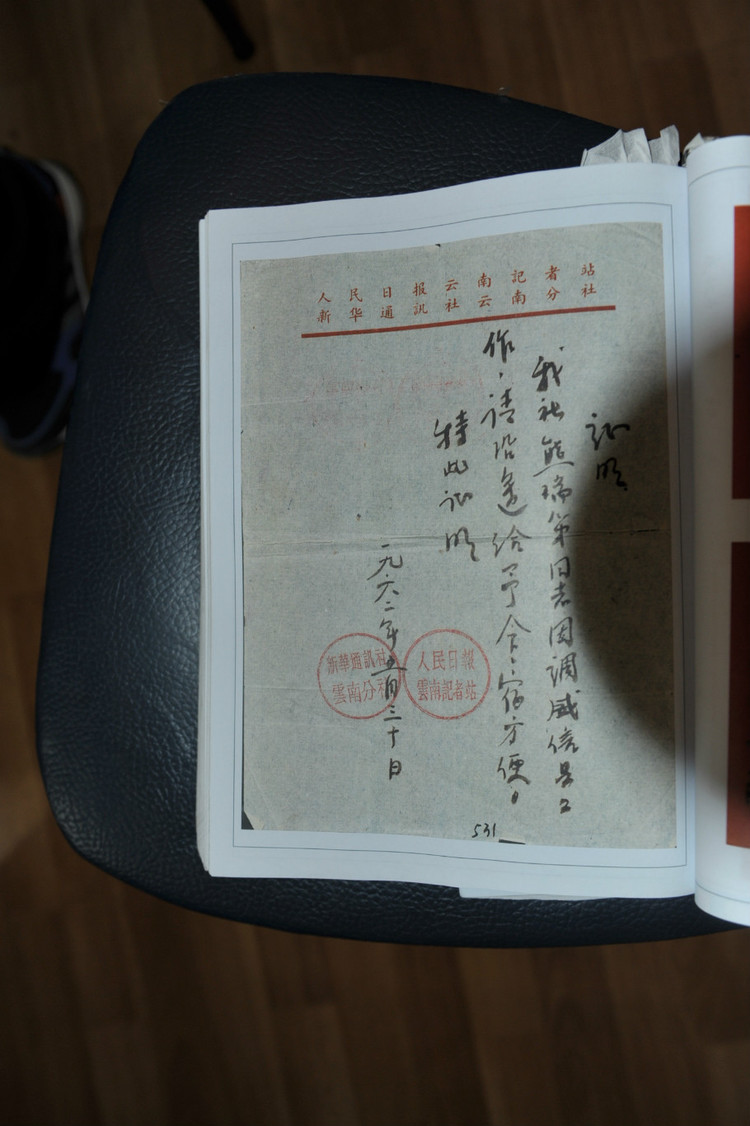 人民日报云南记者站
新华通訊社云南分社
证明
我社熊瑞第同志因调威信县工
作，请沿途给予食、宿方便。
特此证明
一九六二年五月三十日
新華通訊社
雲南分社
人民日報
雲南記者站
531